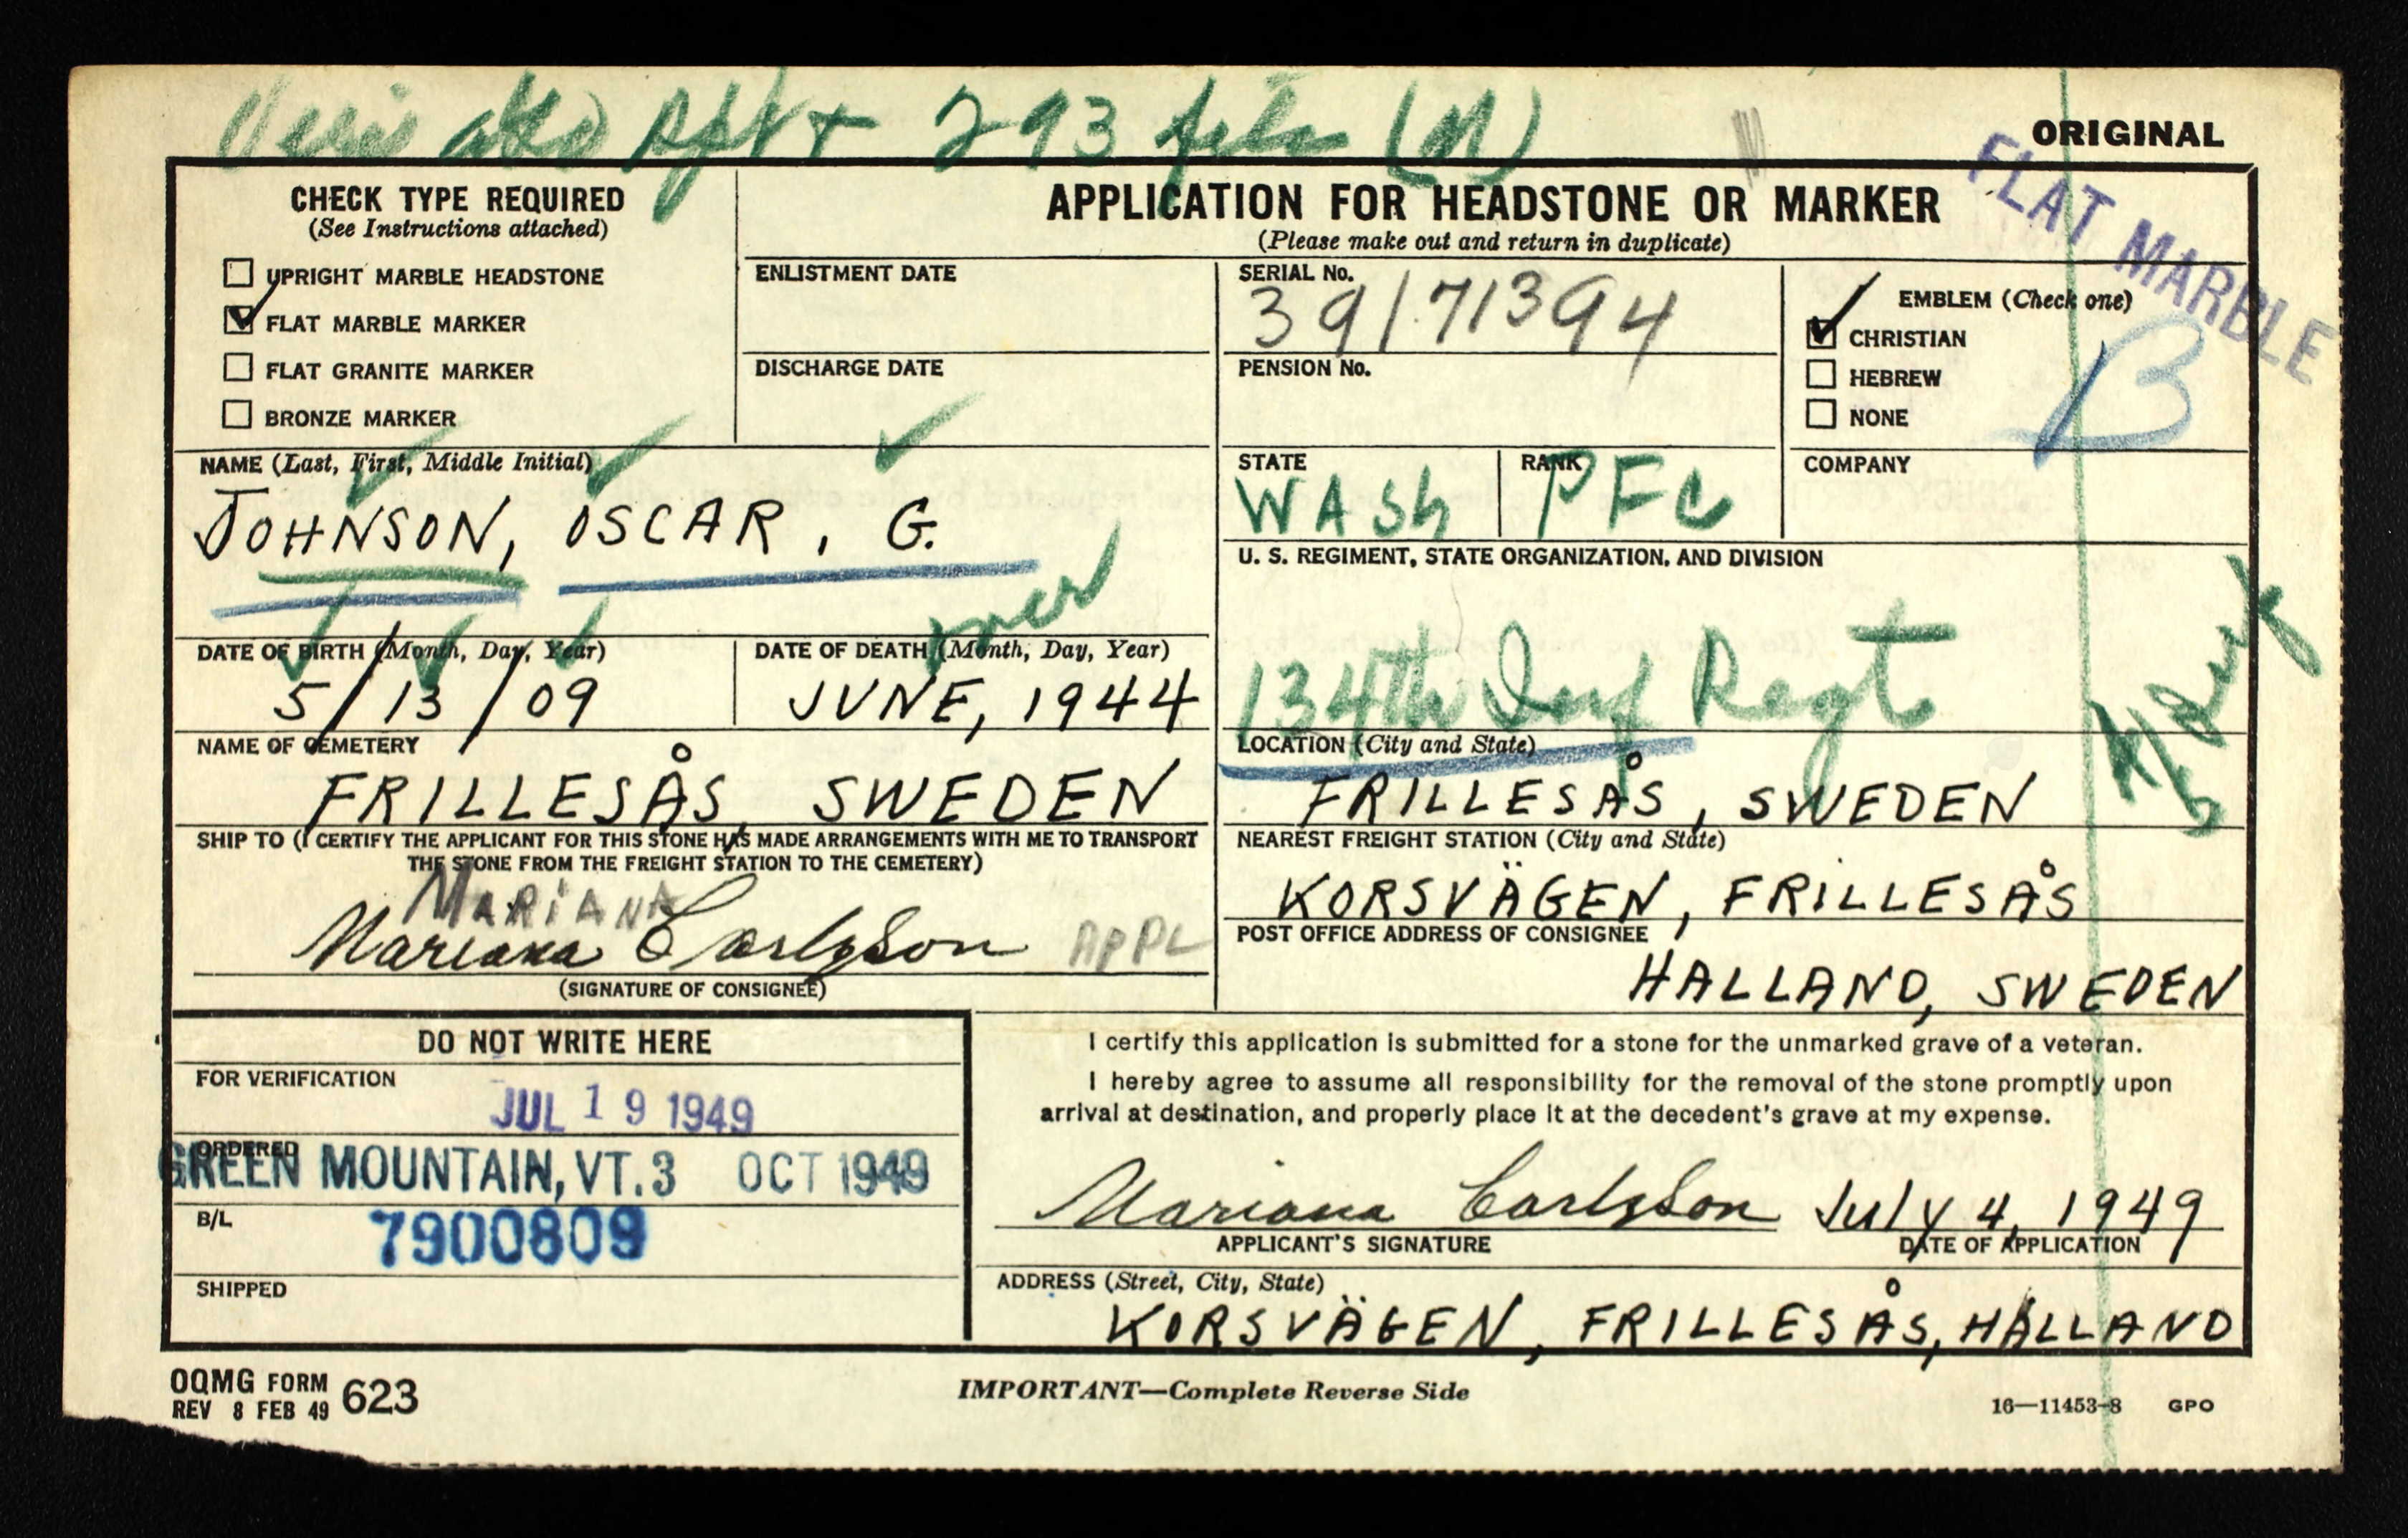 293 file (M)
ORIGINAL
FLAT MARBLE
CHECK TYPE REQUIRED
(See Instructions attached)
UPRIGHT MARBLE HEADSTONE
FLAT MARBLE MARKER
FLAT GRANITE MARKER
BRONZE MARKER
APPLICATION FOR HEADSTONE OR MARKER
(Please make out and return in duplicate)
ENLISTMENT DATE
DISCHARGE DATE
SERIAL No.
39171394
PENSION No.
EMBLEM (Check one)
CHRISTIAN
HEBREW
NONE
B
NAME (Last, First, Middle Initial)
JOHNSON, OSCAR, G.
STATE
WASh
RANK
PFC
COMPANY
U. S. REGIMENT, STATE ORGANIZATION, AND DIVISION
134th Inf Regt
DATE OF BIRTH (Month, Day, Year)
5/13/09
DATE OF DEATH (Month, Day, Year)
JUNE, 1944
NAME OF CEMETERY
FRILLESÅS, SWEDEN
LOCATION (City and State)
FRILLESÅS, SWEDEN
SHIP TO (I CERTIFY THE APPLICANT FOR THIS STONE HAS MADE ARRANGEMENTS WITH ME TO TRANSPORT
THE STONE FROM THE FREIGHT STATION TO THE CEMETERY)
MARIANA
Mariana Carlsson APPL
(SIGNATURE OF CONSIGNEE)
NEAREST FREIGHT STATION (City and State)
KORSVÄGEN, FRILLESÅS
POST OFFICE ADDRESS OF CONSIGNEE
HALLAND, SWEDEN
DO NOT WRITE HERE
FOR VERIFICATION
JUL 19 1949
ORDERED
GREEN MOUNTAIN, VT. 3 OCT 1949
B/L
7900809
SHIPPED
I certify this application is submitted for a stone for the unmarked grave of a veteran.
I hereby agree to assume all responsibility for the removal of the stone promptly upon
arrival at destination, and properly place it at the decedent's grave at my expense.
Mariana Carlsson July 4, 1949
APPLICANT'S SIGNATURE
DATE OF APPLICATION
ADDRESS (Street, City, State)
KORSVÄGEN, FRILLESÅS, HALLAND
OQMG FORM 623
REV 8 FEB 49
IMPORTANT—Complete Reverse Side
16—11453-8 GPO